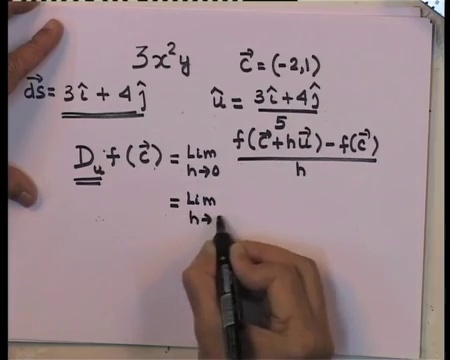 3x²y c⃗ = (-2,1)
d⃗s = 3î + 4ĵ û = (3î + 4ĵ)/5
D_u f(c⃗) = Lim h→0 (f(c⃗+hu⃗) - f(c⃗))/h
= Lim h→